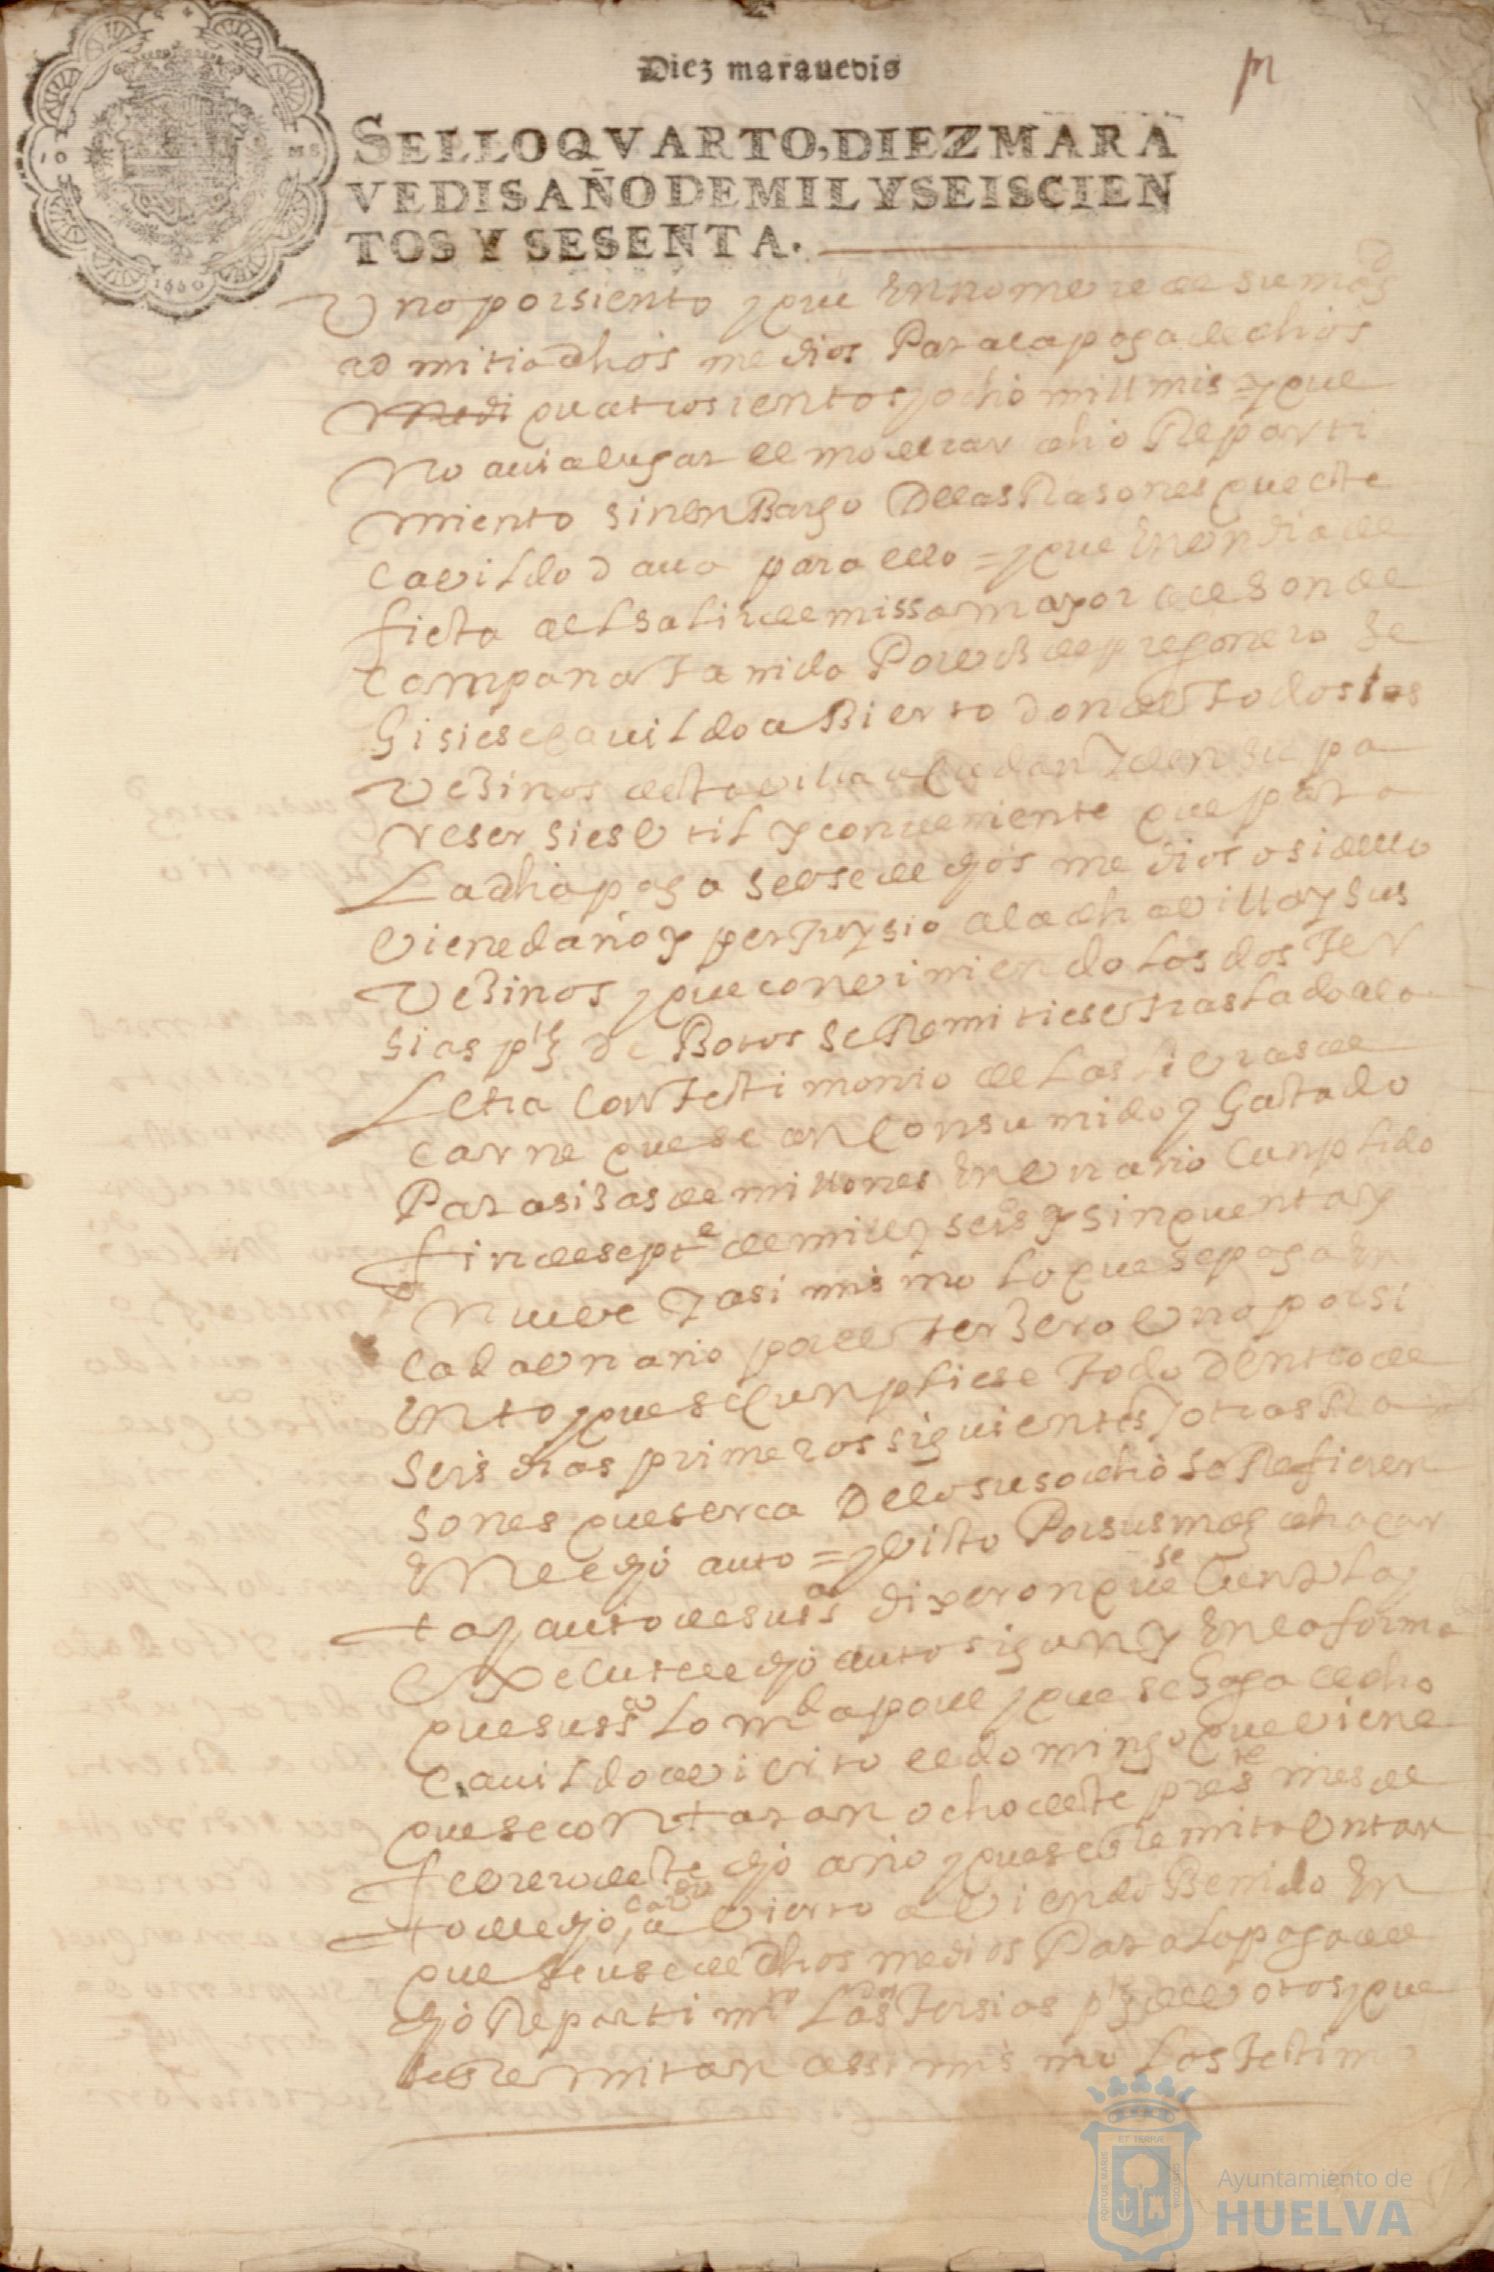 Diez marauedis
SELLO QVARTO, DIEZ MARA
VEDIS AÑO DE MIL Y SEISCIEN
TOS Y SESENTA.
1660
Uno por siento y que en nombre de su magd
admitia dhos medios Para la paga de dhos
quatrosientos y ocho mill mrs = y que
No auia lugar el moderar dho Reparti
miento sin enBargo De las Rasones que este
cavildo daua para ello = y que en un dia de
fiesta al salir de missa mayor a el son de
campana tanida Por vos de pregonero se
hisiese cauildo aBierto donde todos los
vesinos desta villa acudan y den su pa
reser si es util y conueniente que para
La dha paga se use de dhos medios o si dello
viene daño y perjuysio a la dha villa y sus
vesinos y que conviniendo las dos ter
sias ptes de Botos se Remitiese traslado a la
Letra con testimonio de las libras de
carne que se an consumido y gastado
Para sisas de millones en un año cunplido
fin de septe de mill y seiso y sinquenta y
nueve y asi mismo lo que se paga en
cada un año por el terzero uno por si
ento y que se cunpliese todo dentro de
seis dias primeros siguientes y otras Ra
sones que serca De lo susodicho se Refieren
en el dho auto = y visto Por sus mds dha car
ta y auto de su sa dixeron que se cunpla y
execute el dho auto sigun y en la forma
que su sa lo mda por el y que se haga el dho
cauildo avierto el domingo que viene
que se contaran ocho deste preste mes de
febrero deste dho año y que se le mita un tan
to del dho cavdo avierto aviendo Benido en
que se use de dhos medios Para la paga de
dho Repartimto Las dos tersias ptes de votos y que
se le rremitan assi mismo los testim
PORTUS MARIS
ET TERRÆ
CUSTODIA
Ayuntamiento de
HUELVA